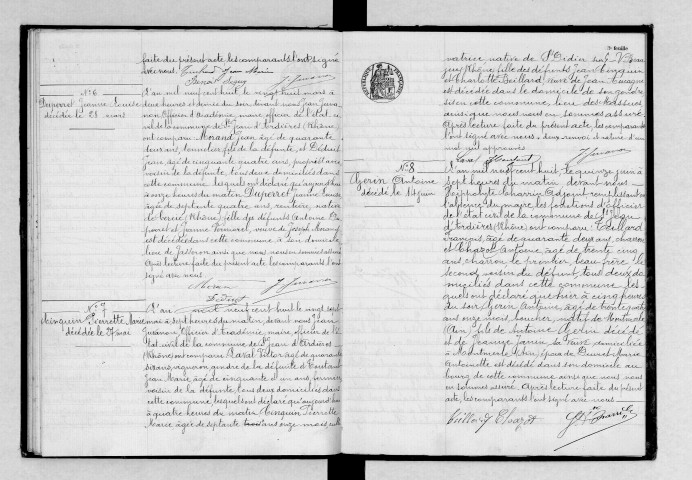 faite du présent acte les comparants l'ont signé
avec nous.
N° 6
Duporret Jeanne Louise
décédée le 28 mars
L'an mil neuf cent huit le vingt huit mars à
deux heures et demie du soir devant nous Jean
Officier d'Académie, maire officier de l'état ci-
vil de la commune de St Jean d'Ardières (Rhône)
ont comparu Morand Jean âgé de quarante
deux ans, tonnelier fils de la défunte, et Déduit
Jean âgé de cinquante quatre ans, propriétaire
voisin de la défunte, tous deux domiciliés dans
cette commune, lesquels ont déclaré qu'aujourd'hui
à onze heures du matin Duporret Jeanne Louise
âgée de septante quatre ans, rentière, native
de (Rhône) fille des défunts Antoine Du-
porret et Jeanne veuve de Joseph Morand
est décédée dans cette commune à son domicile
lieu de ainsi que nous nous en sommes assuré
Après lecture faite du présent acte les comparants l'ont
signé avec nous
Morand
Déduit
N° 7
Cinquin Pierrette Marie
décédée le 27 mai
L'an mil neuf cent huit le vingt sept
mai à sept heures du matin, devant nous Jean
Officier d'Académie, maire, officier de l'É-
tat civil de la commune de St Jean d'Ardières
(Rhône) ont comparu Laval Victor âgé de quarante
six ans, vigneron gendre de la défunte et
Jean Marie âgé de cinquante et un ans, fermier,
voisin de la défunte, tous deux domiciliés dans
cette commune, lesquels ont déclaré qu'aujourd'hui
à quatre heures du matin Cinquin Pierrette
Marie âgée de septante trois ans onze mois, culti-
feuille
vatrice, native de St Didier sur
(Rhône) fille des défunts Jean Cinquin
et Charlotte Beillard, veuve de Jean
est décédée dans le domicile de son gendre
sis en cette commune, lieu des
ainsi que nous nous en sommes assuré
Après lecture faite du présent acte, les comparants
l'ont signé avec nous. deux renvoi et
mot nul approuvés
N° 8
Gerin Antoine
décédé le 14 juin
L'an mil neuf cent huit, le quinze juin à
sept heures du matin devant nous
adjoint remplissant
l'absence du maire les fonctions d'officier
de l'état civil de la commune de St Jean
d'Ardières (Rhône) ont comparu Teillard
François, âgé de quarante deux ans, charron
et Chazot Antoine âgé de trente cinq
ans, charron le premier, beau frère le
second, voisin du défunt, tous deux do-
miciliés dans cette commune les-
quels ont déclaré que hier à cinq heures
du soir Gerin Antoine, âgé de trente quatre
ans onze mois boucher, natif de Montmerle
(Ain) fils de Antoine Gerin décédé
et de Jeannie Janin sa veuve domiciliée
à Montmerle (Ain), époux de Marie
Antoinette est décédé dans son domicile au
bourg de cette commune ainsi que nous nous
en sommes assuré. Après lecture faite du présent
acte, les comparants l'ont signé avec nous
Teillard Chazot